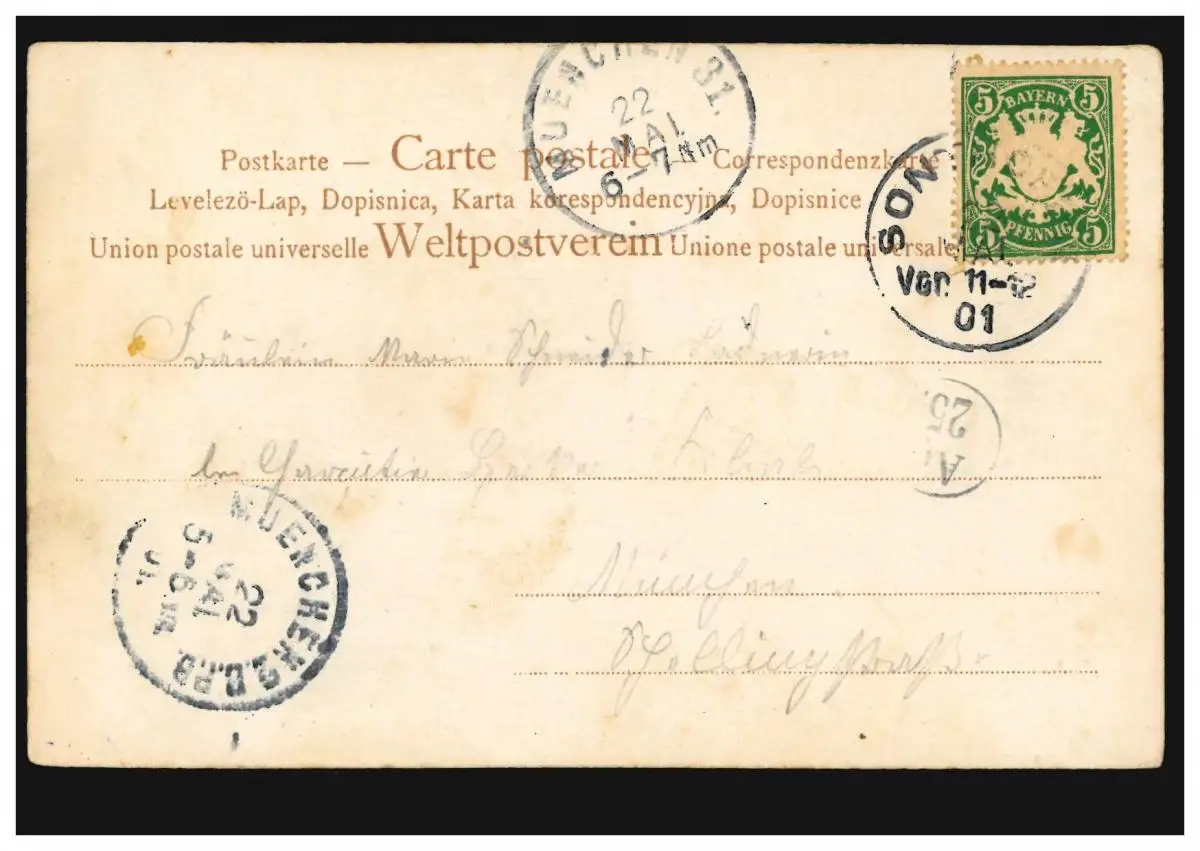 MUENCHEN 31.
22
MAI.
6-7 Nm
5 BAYERN 5
5 PFENNIG 5
Postkarte — Carte postale — Correspondenzkarte
Levelező-Lap, Dopisnica, Karta korespondencyjna, Dopisnice
Union postale universelle Weltpostverein Unione postale universale
SON
MAI
Vor. 11-12
01
Fräulein Marie Schneider
A.
25.
bei
MUENCHEN 2.B.P.
22
MAI.
5-6
01.
München
Schellingstraße